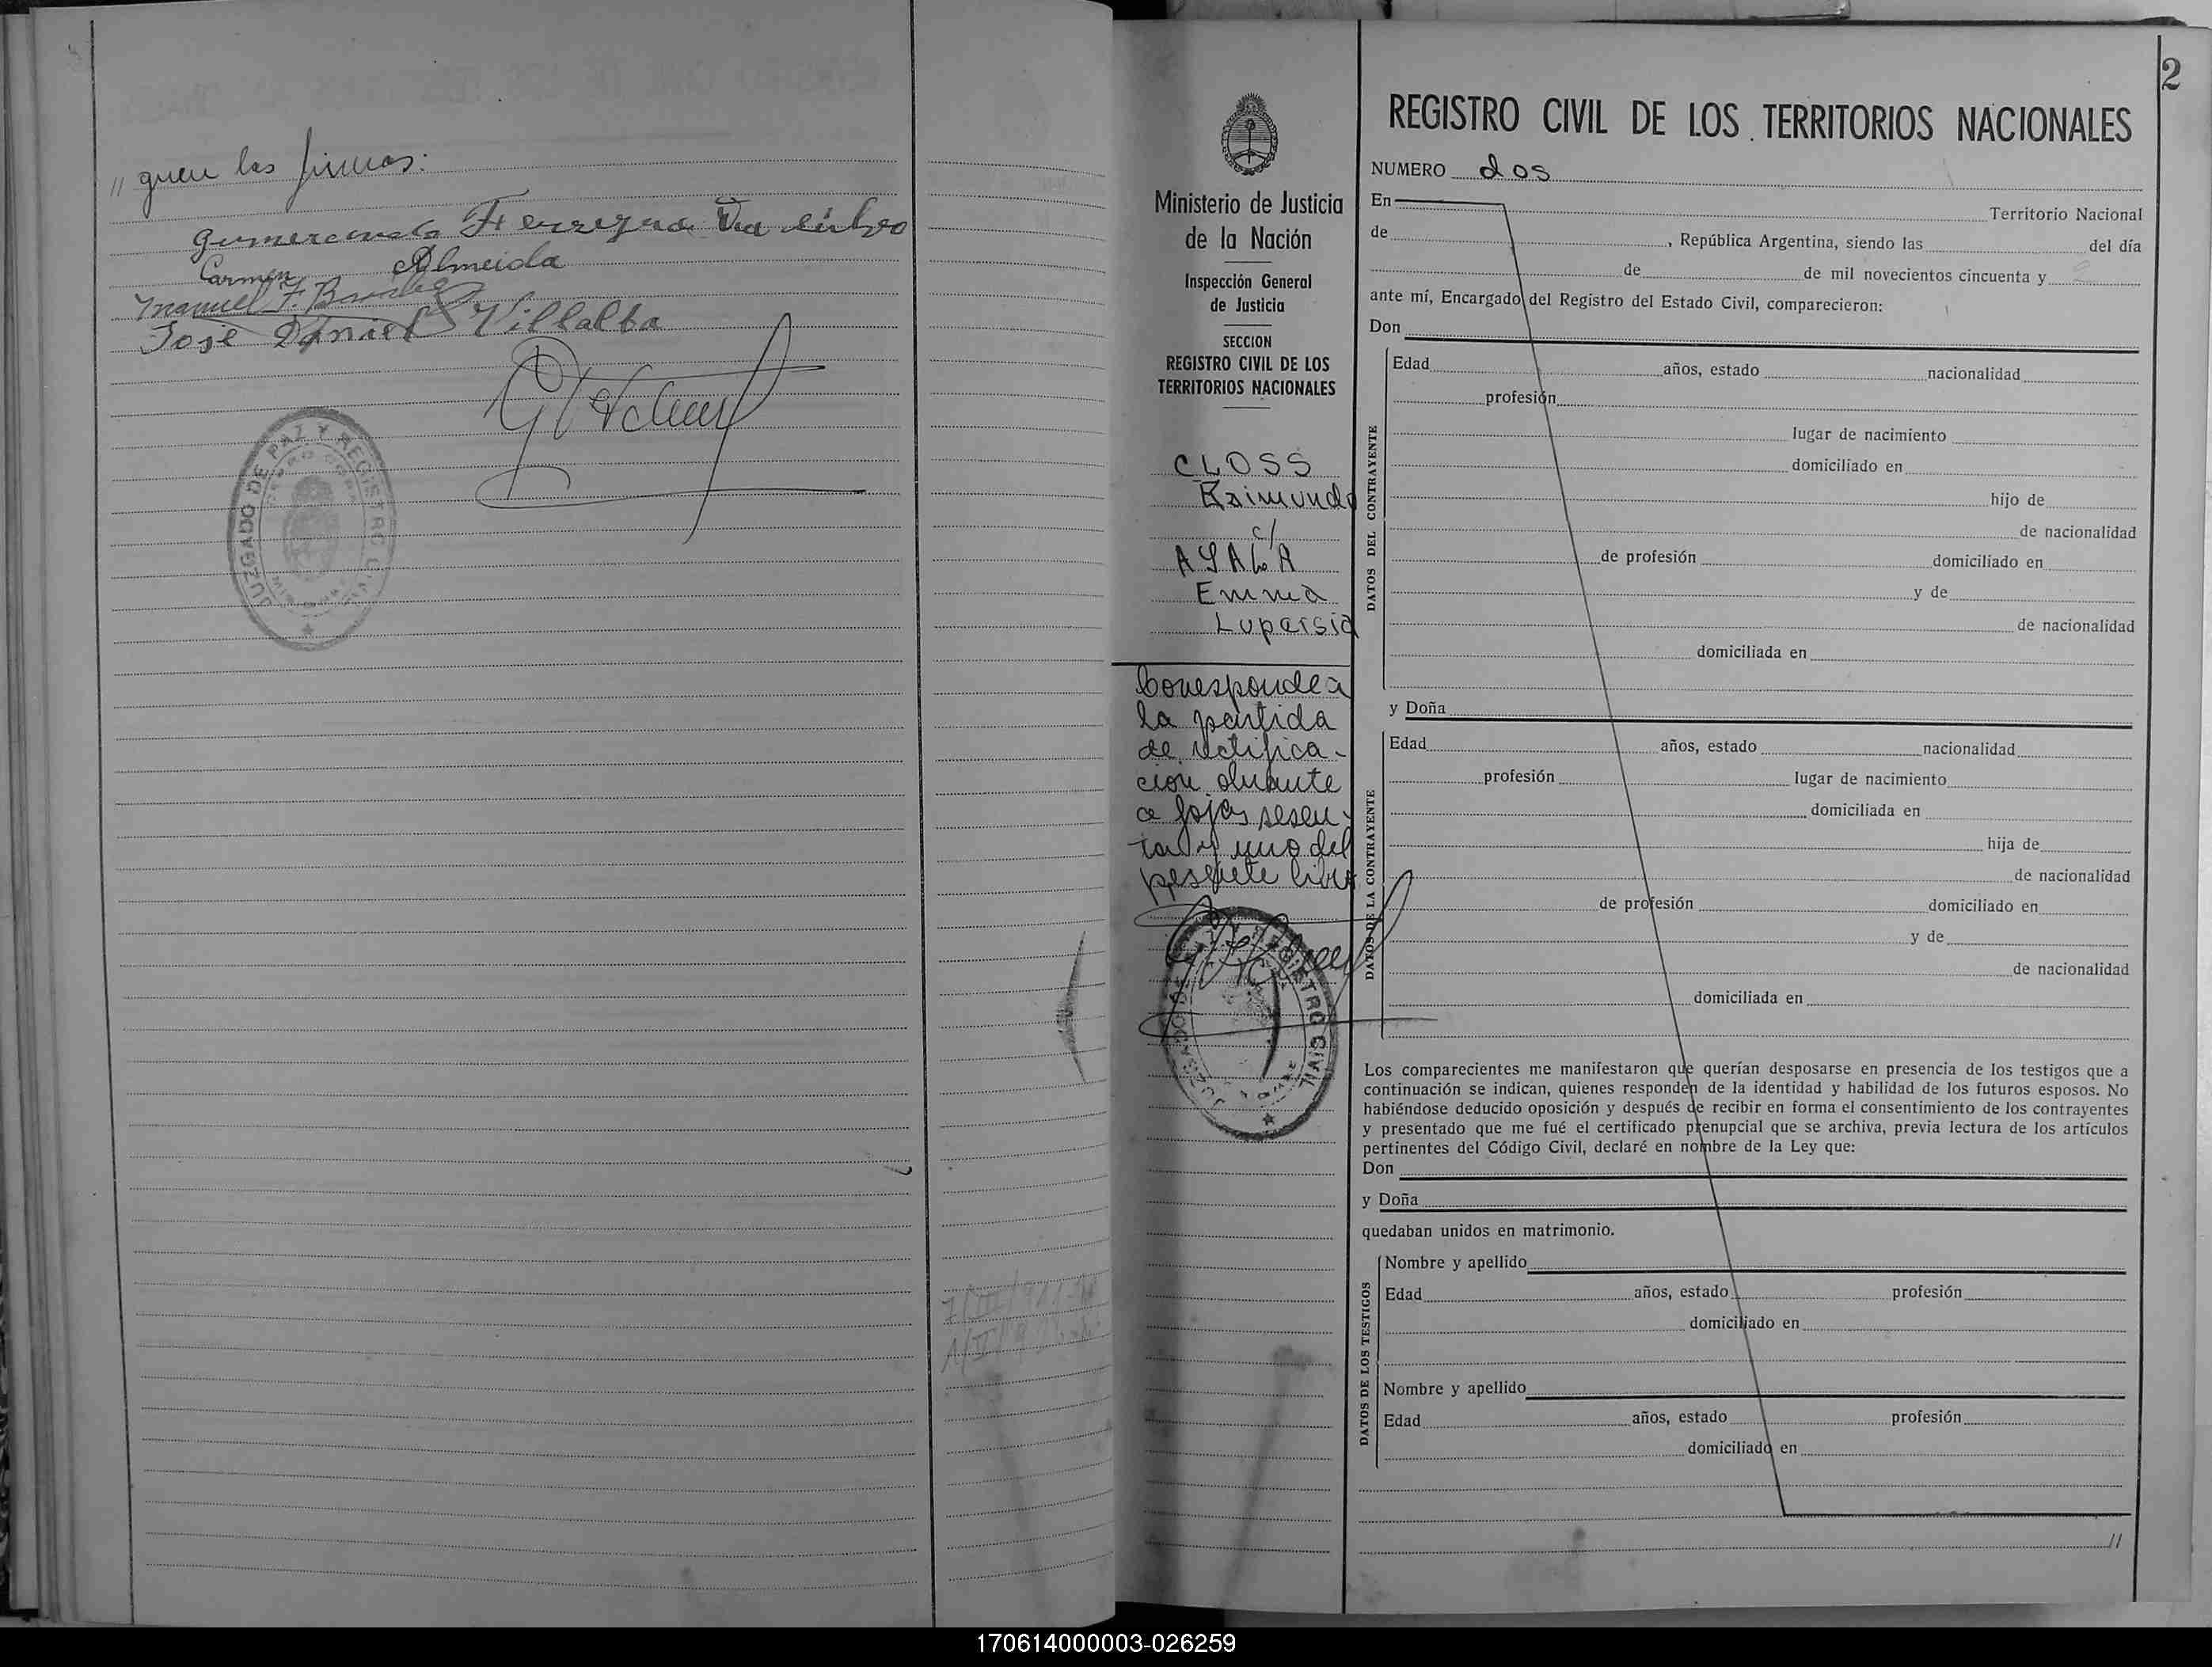 // guen las firmas:
Carmen Almeida
Manuel F.
José Daniel Villalba
JUZGADO DE PAZ Y REGISTRO CIVIL
2
Ministerio de Justicia
de la Nación
Inspección General
de Justicia
SECCION
REGISTRO CIVIL DE LOS
TERRITORIOS NACIONALES
CLOSS
Raimundo
c/
AYALA
Emma
Lupersia
Corresponde a
la partida
de rectifica-
ción obrante
a fojas sesen-
ta y uno del
presente libro
REGISTRO CIVIL
REGISTRO CIVIL DE LOS TERRITORIOS NACIONALES
NUMERO dos
En Territorio Nacional
de , República Argentina, siendo las del día
de de mil novecientos cincuenta y
ante mí, Encargado del Registro del Estado Civil, comparecieron:
Don
DATOS DEL CONTRAYENTE
Edad años, estado nacionalidad
profesión
lugar de nacimiento
domiciliado en
hijo de
de nacionalidad
de profesión domiciliado en
y de
de nacionalidad
domiciliada en
y Doña
DATOS DE LA CONTRAYENTE
Edad años, estado nacionalidad
profesión lugar de nacimiento
domiciliada en
hija de
de nacionalidad
de profesión domiciliado en
y de
de nacionalidad
domiciliada en
Los comparecientes me manifestaron que querían desposarse en presencia de los testigos que a
continuación se indican, quienes responden de la identidad y habilidad de los futuros esposos. No
habiéndose deducido oposición y después de recibir en forma el consentimiento de los contrayentes
y presentado que me fué el certificado prenupcial que se archiva, previa lectura de los artículos
pertinentes del Código Civil, declaré en nombre de la Ley que:
Don
y Doña
quedaban unidos en matrimonio.
DATOS DE LOS TESTIGOS
Nombre y apellido
Edad años, estado profesión
domiciliado en
Nombre y apellido
Edad años, estado profesión
domiciliado en
//
170614000003-026259